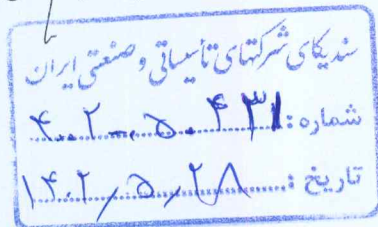 سندیکای شرکتهای تأسیساتی و صنعتی ایران
شماره: ۴۰۲-۵۰۴۳۱
تاریخ: ۱۴۰۲/۵/۲۸